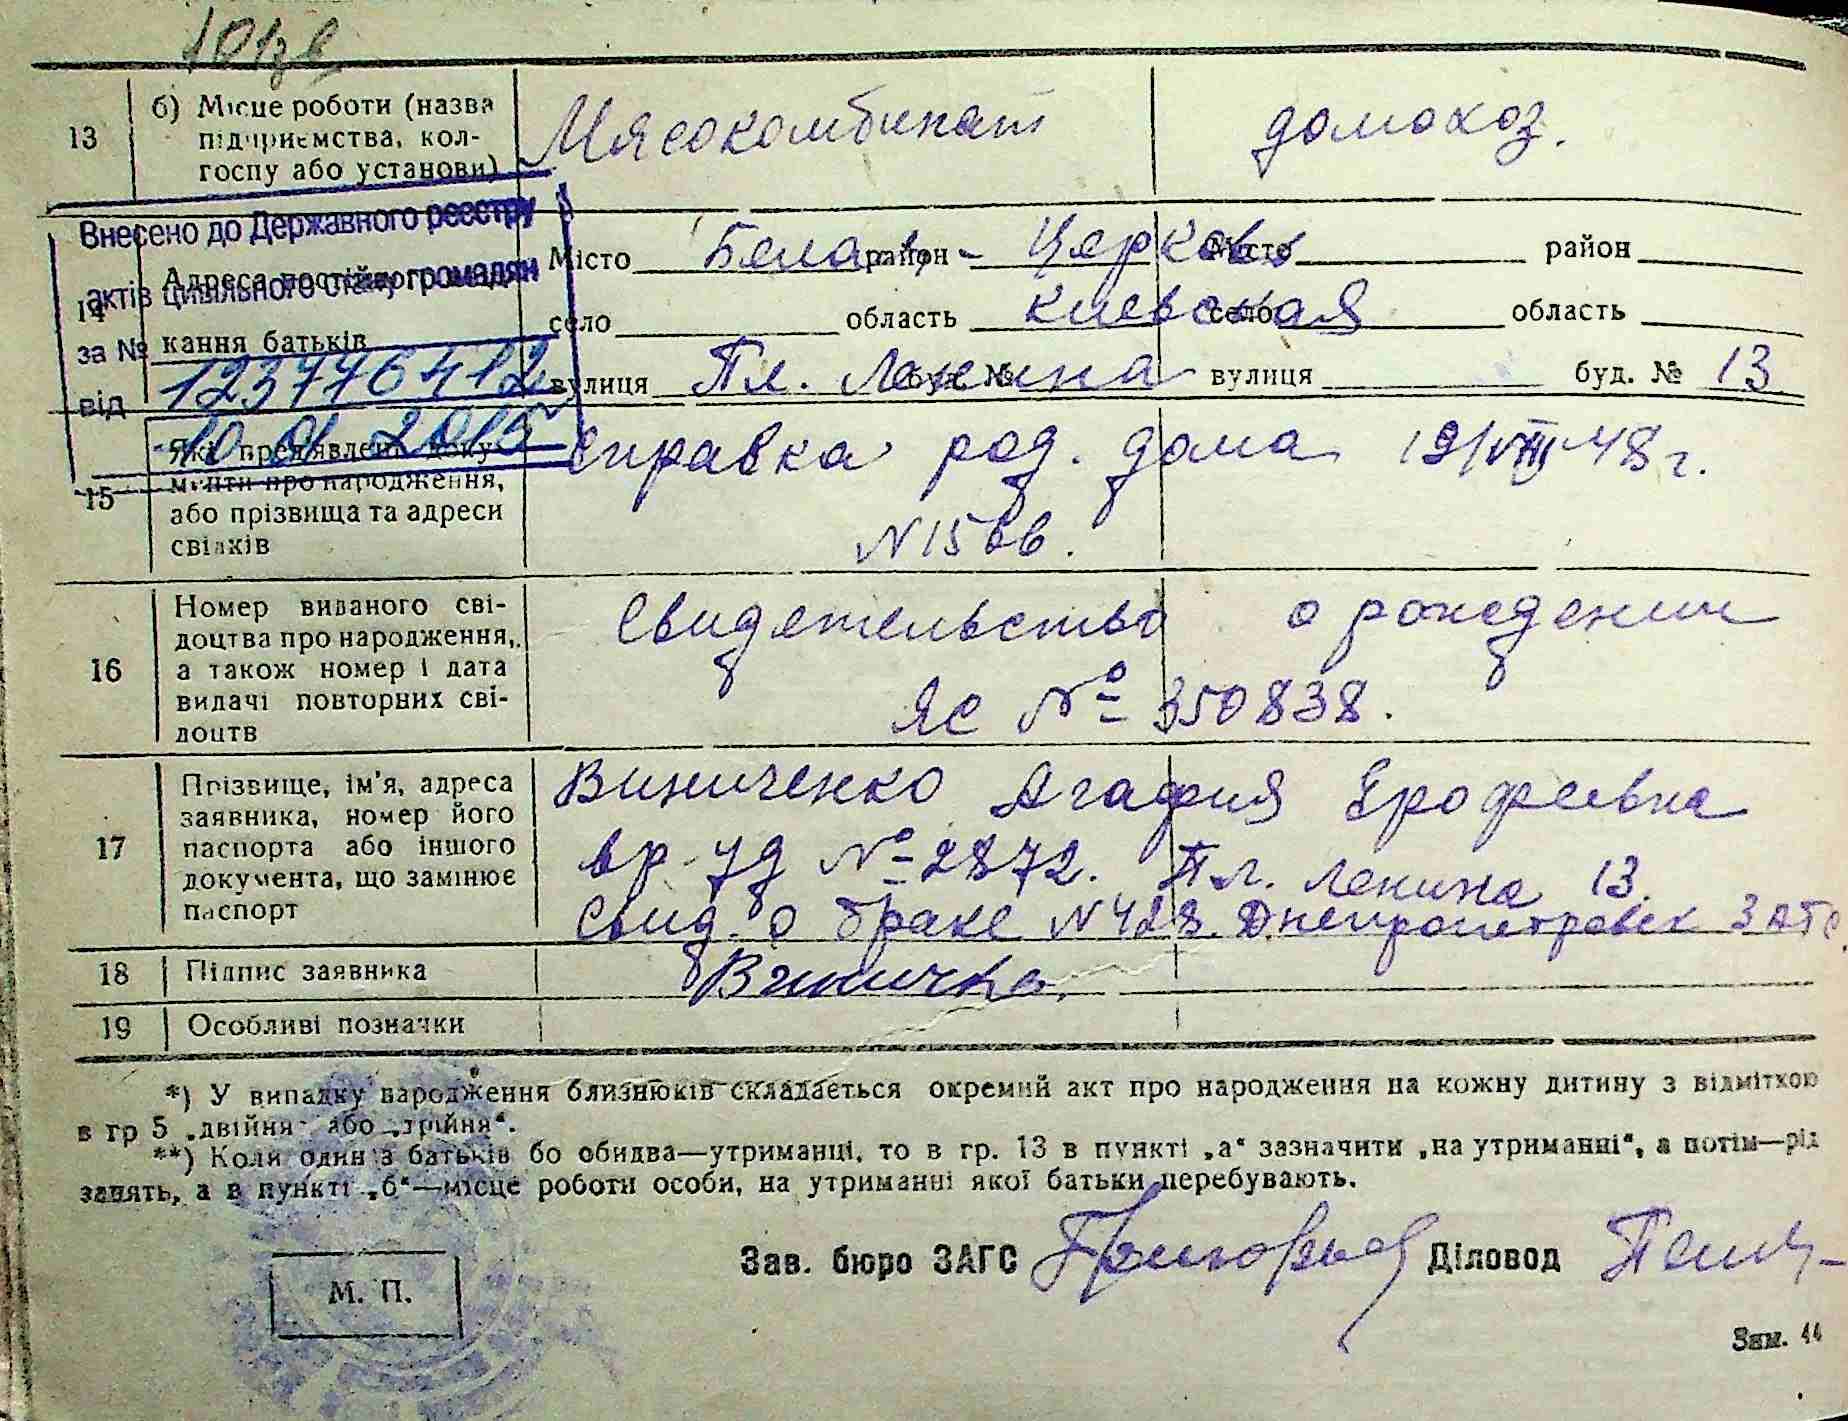 13 б) Місце роботи (назва Мясокомбинат домохоз.
підприємства, кол-
госпу або установи)
Внесено до Державного реєстру
актів цивільного стану громадян
за № 123776412
від 10 01 2015
14 Адреса постійного
кання батьків
Місто Белая - Церковь район Місто район
село область Киевская село область
вулиця Пл. Ленина буд. № вулиця буд. № 13
15 Які пред'явлені доку- Справка род. дома 19/VIII 48 г.
менти про народження, N 1566.
або прізвища та адреси
свідків
16 Номер виданого сві- Свидетельство о рождении
доцтва про народження, ЯС № 350838.
а також номер і дата
видачі повторних сві-
доцтв
17 Прізвище, ім'я, адреса Виниченко Агафия Ерофеевна
заявника, номер його
паспорта або іншого вр. уд № 2872. Пл. Ленина 13.
документа, що замінює Свид. о браке N 428. Днепропетровск ЗАГС.
паспорт
18 Підпис заявника
19 Особливі позначки
*) У випадку народження близнюків складається окремий акт про народження на кожну дитину з відміткою
в гр 5 „двійня" або „трійня".
**) Коли один з батьків бо обидва—утриманці, то в гр. 13 в пункті „а" зазначити „на утриманні", а потім—рід
занять, а в пункті „б"—місце роботи особи, на утриманні якої батьки перебувають.
Зав. бюро ЗАГС Діловод
М. П.
Зам. 44